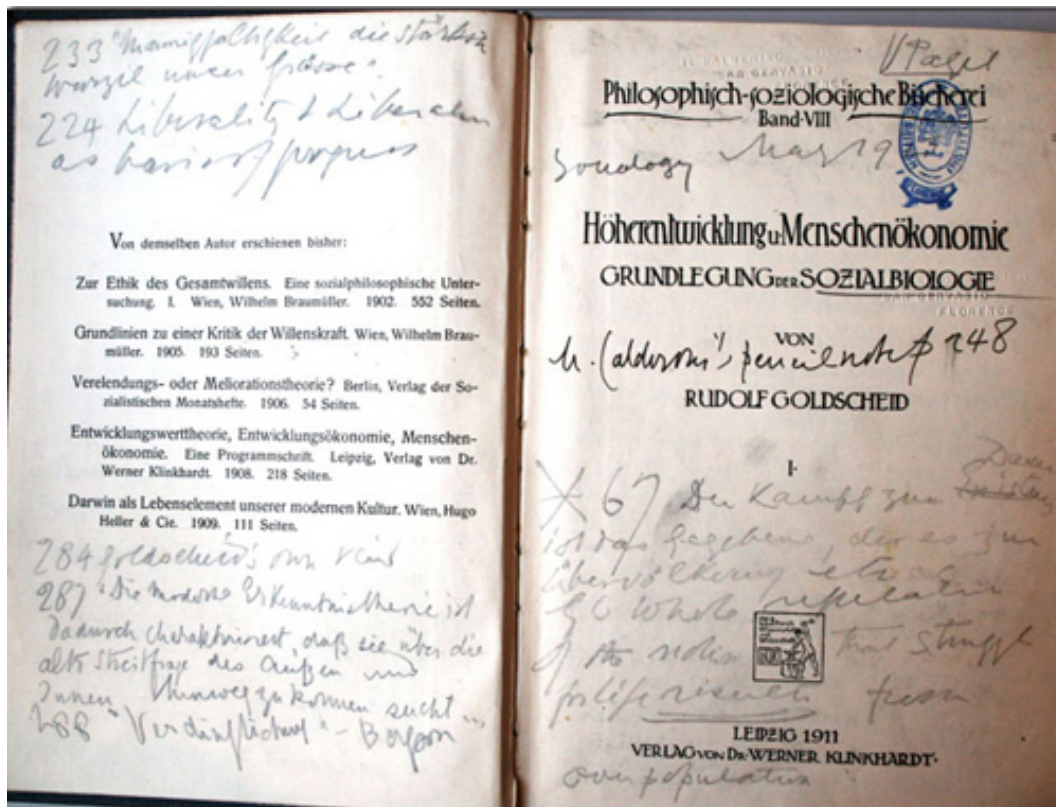 233 "Mannigfaltigkeit die stärkste
Wurzel unserer Grösse".
224 Liberality & Liberalism
as basis of progress
Von demselben Autor erschienen bisher:
Zur Ethik des Gesamtwillens. Eine sozialphilosophische Unter-
suchung. I. Wien, Wilhelm Braumüller. 1902. 552 Seiten.
Grundlinien zu einer Kritik der Willenskraft. Wien, Wilhelm Brau-
müller. 1905. 193 Seiten.
Verelendungs- oder Meliorationstheorie? Berlin, Verlag der So-
zialistischen Monatshefte. 1906. 54 Seiten.
Entwicklungswerttheorie, Entwicklungsökonomie, Menschen-
ökonomie. Eine Programmschrift. Leipzig, Verlag von Dr.
Werner Klinkhardt. 1908. 218 Seiten.
Darwin als Lebenselement unserer modernen Kultur. Wien, Hugo
Heller & Cie. 1909. 111 Seiten.
284 Goldscheid's own
287 "Die moderne Erkenntnistheorie ist
dadurch charakterisiert, daß sie über die
alte Streitfrage des Außen und
Innen hinweg zu kommen sucht ...
288 - Bergson
Pagel
SAN GERVASIO
FLORENCE
Philosophisch-soziologische Bücherei
Band VIII
Sociology May 19
Höherentwicklung u. Menschenökonomie
GRUNDLEGUNG DER SOZIALBIOLOGIE
SAN GERVASIO
FLORENCE
VON
pencil note p 248
RUDOLF GOLDSCHEID
I.
67 Der Kampf zum Dasein
ist das Gegebene, der es zur
Übervölkerung
whole
of the notion that struggle
from
LEIPZIG 1911
VERLAG VON DR. WERNER KLINKHARDT.
over population